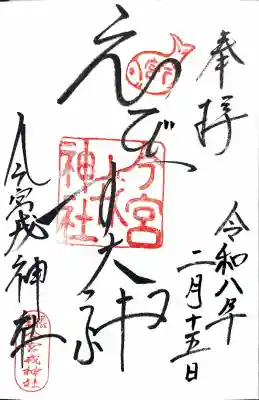 奉拝
令和八年
二月十五日
えびす大神
今宮戎神社
今宮戎神社